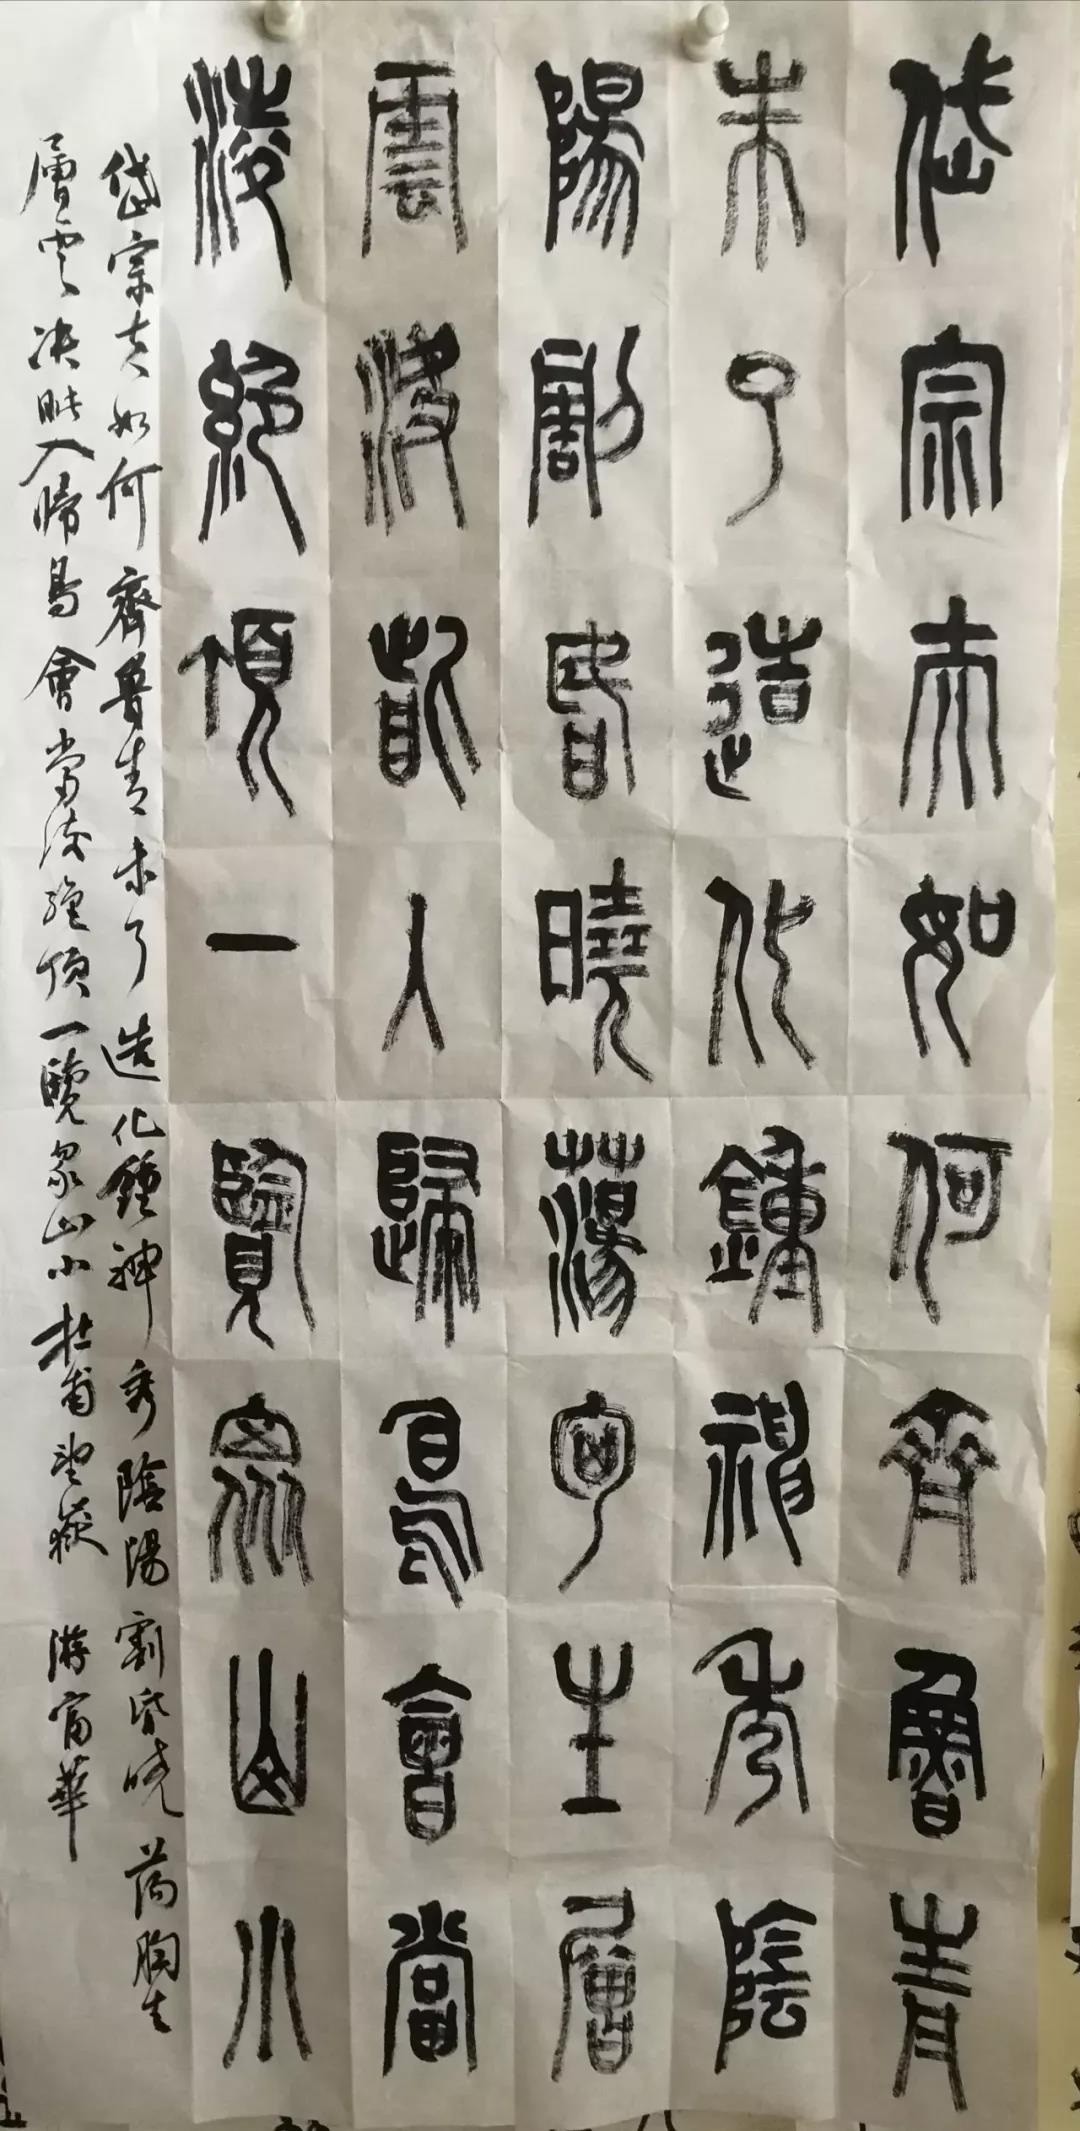 岱宗夫如何齊魯青
未了造化鍾神秀陰
陽割昏曉蕩胸生層
雲決眥入歸鳥會當
淩絕頂一覽眾山小
岱宗夫如何齊魯青未了造化鍾神秀陰陽割昏曉蕩胸生
層雲決眥入歸鳥會當淩絕頂一覽眾山小杜甫望嶽 游富華